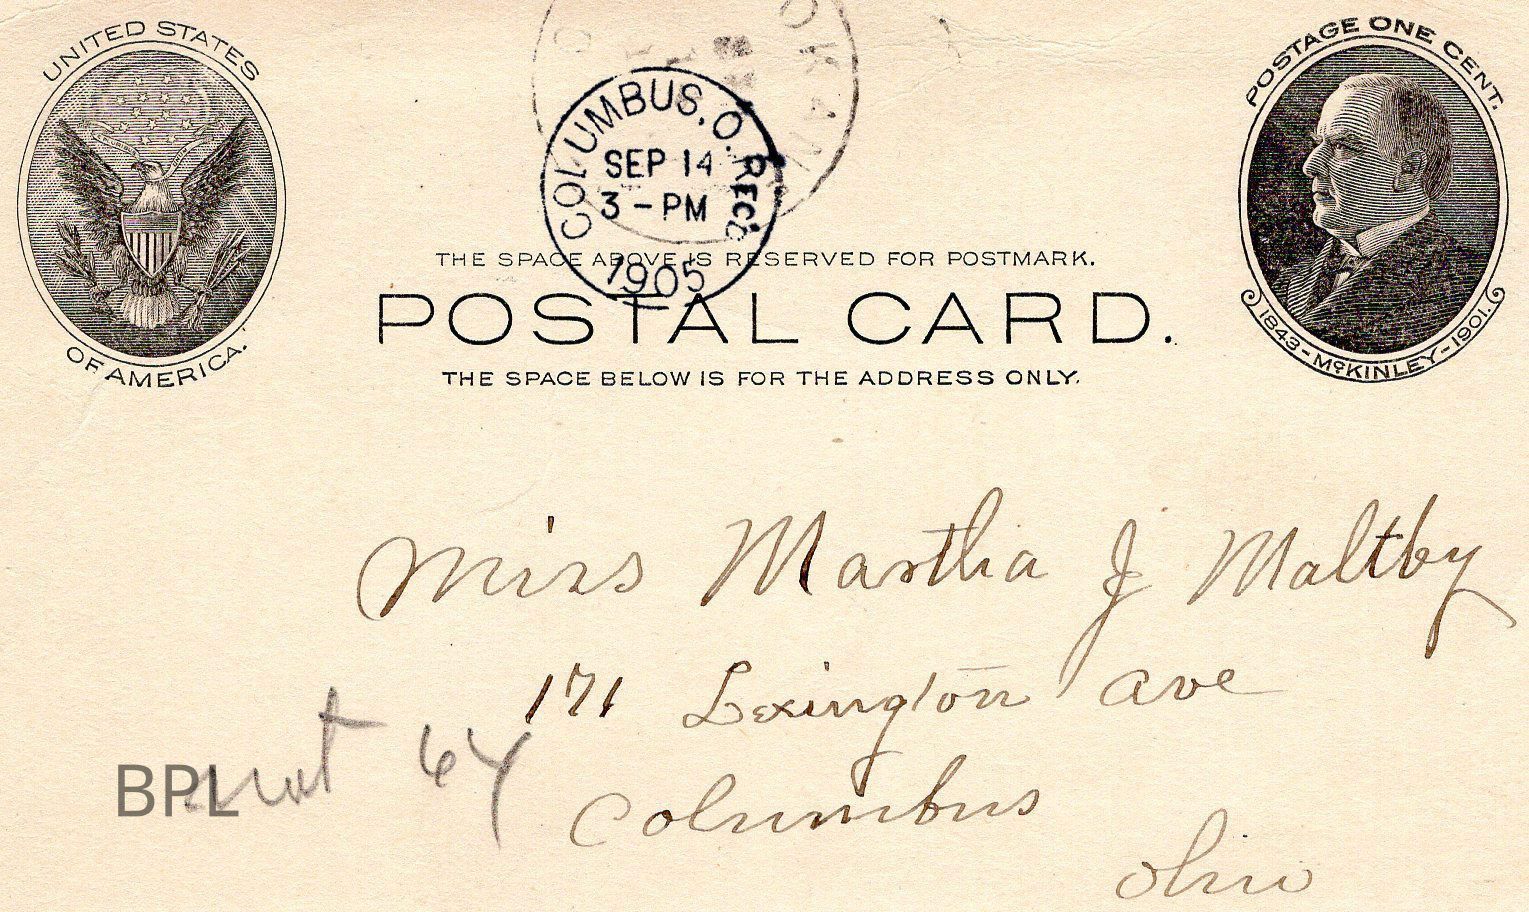 UNITED STATES
OF AMERICA.
POSTAGE ONE CENT.
1843-McKINLEY-1901.
COLUMBUS, O. REC'D
SEP 14
3-PM
1905
THE SPACE ABOVE IS RESERVED FOR POSTMARK.
POSTAL CARD.
THE SPACE BELOW IS FOR THE ADDRESS ONLY.
Miss Martha J Maltby
171 Lexington Ave
Columbus
Ohio
BPL